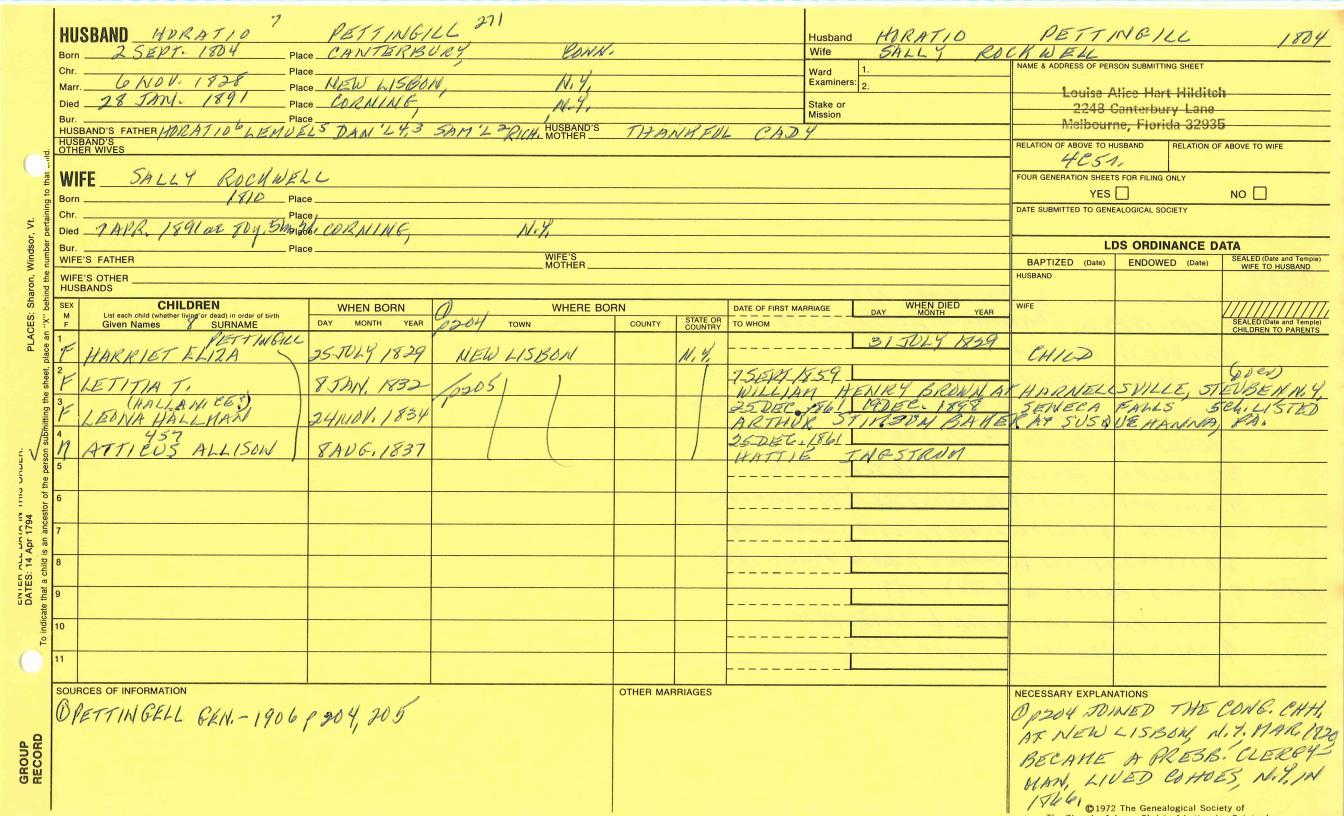 HUSBAND HORATIO 7 PETTINGILL 271
Born 2 SEPT. 1804 Place CANTERBURY, CONN.
Chr. Place
Marr. 6 NOV. 1828 Place NEW LISBON, N.Y.
Died 28 JAN. 1891 Place CORNING, N.Y.
Bur. Place
HUSBAND'S FATHER HORATIO 6 LEMUEL 5 DAN'L 4,3 SAM'L 2 RICH. HUSBAND'S MOTHER THANKFUL CADY
HUSBAND'S OTHER WIVES
Husband HORATIO PETTINGILL 1804
Wife SALLY ROCKWELL
Ward Examiners: 1.
2.
Stake or Mission
NAME & ADDRESS OF PERSON SUBMITTING SHEET
Louise Alice Hart Hilditch
2248 Canterbury Lane
Melbourne, Florida 32935
RELATION OF ABOVE TO HUSBAND RELATION OF ABOVE TO WIFE
4C5r.
FOUR GENERATION SHEETS FOR FILING ONLY
YES NO
DATE SUBMITTED TO GENEALOGICAL SOCIETY
WIFE SALLY ROCKWELL
Born 1810 Place
Chr. Place
Died 7 APR. 1891 ae 80y. 5m. Place CORNING, N.Y.
Bur. Place
WIFE'S FATHER WIFE'S MOTHER
WIFE'S OTHER HUSBANDS
LDS ORDINANCE DATA
BAPTIZED (Date) ENDOWED (Date) SEALED (Date and Temple) WIFE TO HUSBAND
HUSBAND
WIFE
SEALED (Date and Temple) CHILDREN TO PARENTS
SEX M F CHILDREN
List each child (whether living or dead) in order of birth
Given Names 8 SURNAME
WHEN BORN
DAY MONTH YEAR
① p204 WHERE BORN
TOWN COUNTY STATE OR COUNTRY
DATE OF FIRST MARRIAGE
TO WHOM
WHEN DIED
DAY MONTH YEAR
PETTINGILL
1 F HARRIET ELIZA 25 JULY 1829 NEW LISBON N.Y. 31 JULY 1859 CHILD
2 F LETITIA T. 8 JAN. 1832 p205 7 SEPT 1859
WILLIAM HENRY BROWN AT HARNELLSVILLE, STEUBEN N.Y.
3 F (HALLANCE?) LEONA HALLMAN 24 NOV. 1834 25 DEC. 1861 19 DEC. 1898 SENECA FALLS 5CH. LISTED
ARTHUR STIMSON BAKER AT SUSQUEHANNA, PA.
4 M 457 ATTICUS ALLISON 8 AUG. 1837 25 DEC. 1861
HATTIE INGSTRUM
5
6
7
8
9
10
11
SOURCES OF INFORMATION
① PETTINGELL GEN.-1906 p 204, 205
OTHER MARRIAGES
NECESSARY EXPLANATIONS
① p204 JOINED THE CONG. CHH.
AT NEW LISBON, N.Y. MAR.
BECAME A PRESB. CLERGY-
MAN, LIVED COHOES, N.Y. IN
1866.
©1972 The Genealogical Society of
PLACES: Sharon, Windsor, Vt.
ENTER ALL DATA IN THIS ORDER:
DATES: 14 Apr 1794
To indicate that a child is an ancestor of the person submitting the sheet, place an "X" behind the number pertaining to that child.
GROUP RECORD